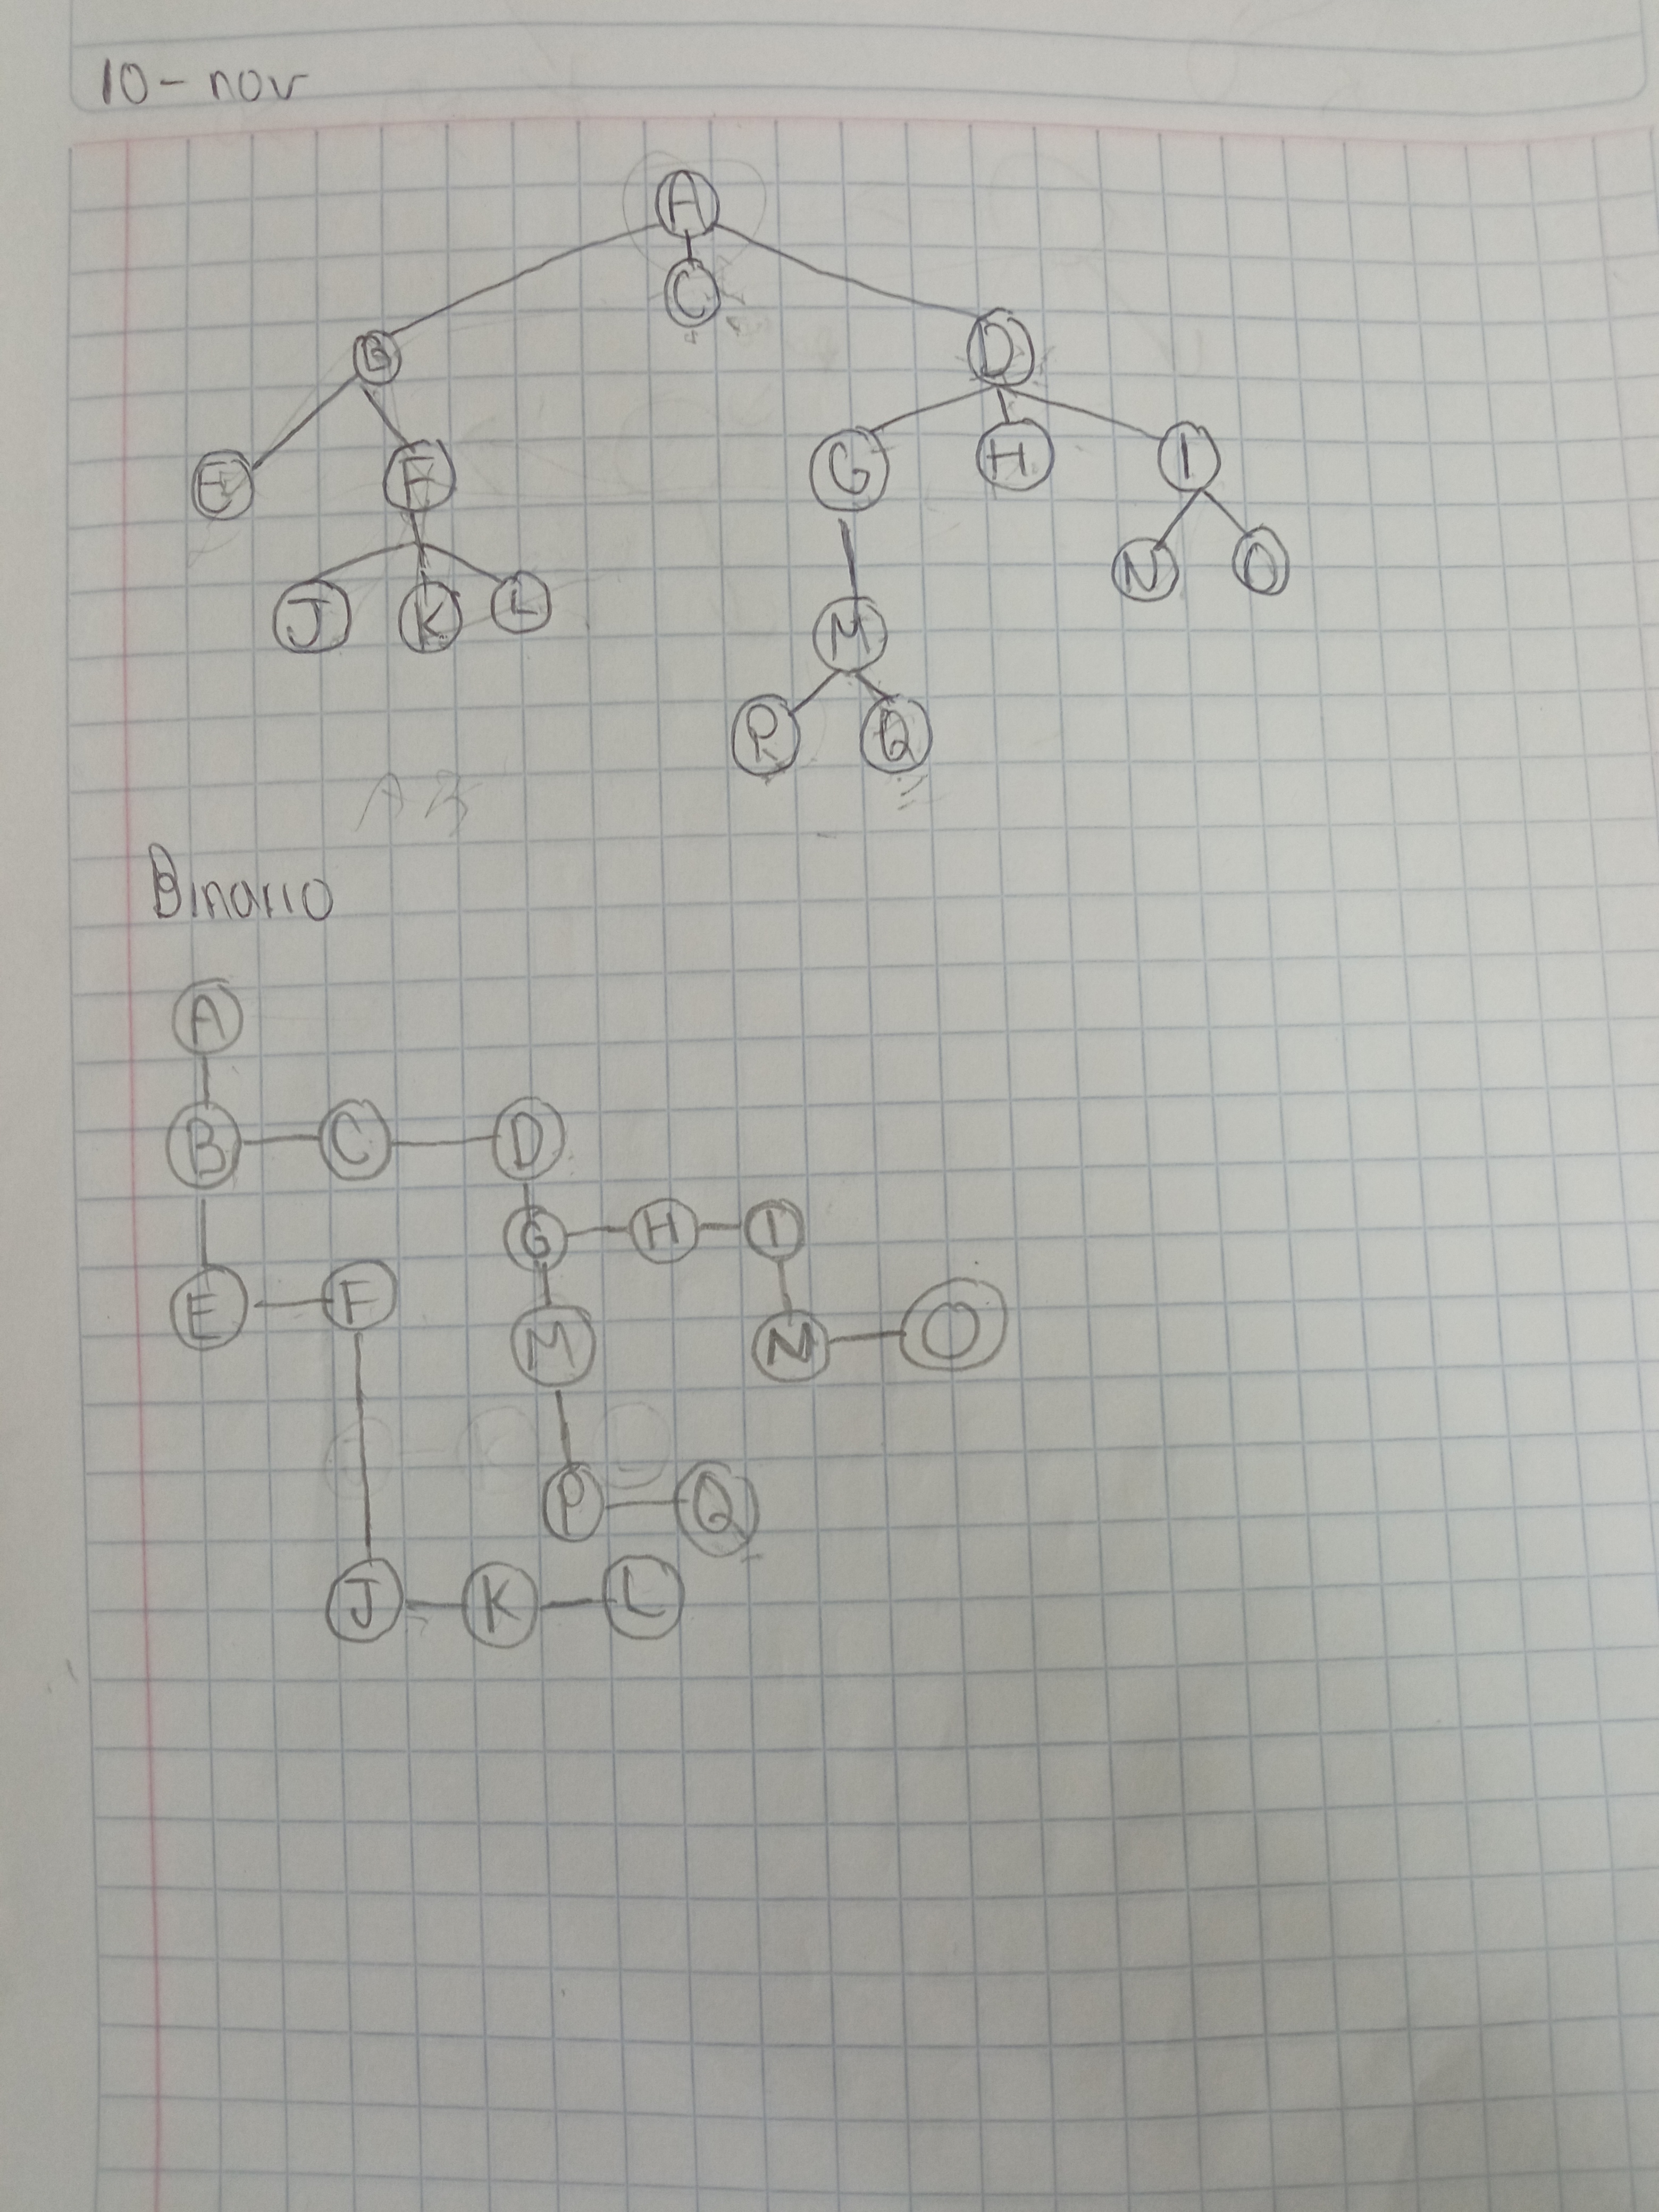 10 - nov
A
C
B D
E F G H I
J K L N O
M
P Q
Binario
A
B C D
G H I
E F M N O
P Q
J K L